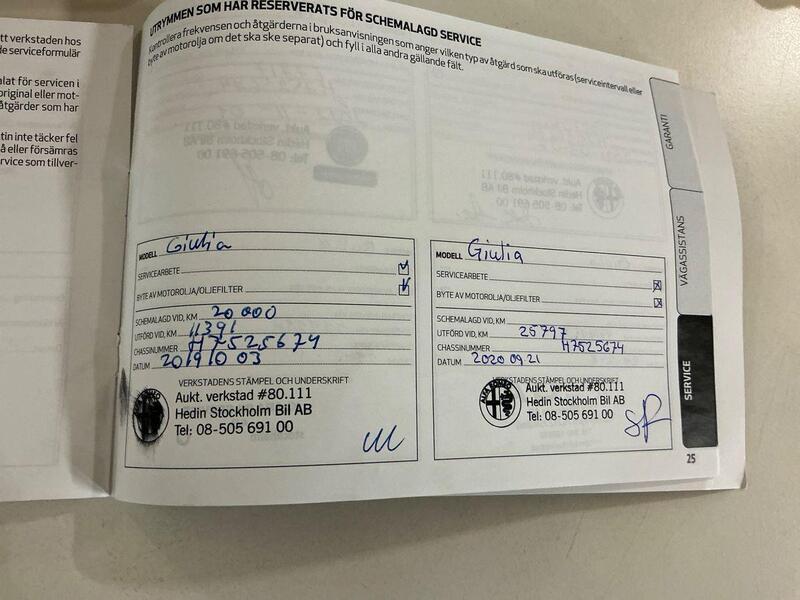 tt verkstaden hos
de serviceformulär
alat för servicen i
original eller mot-
åtgärder som har
tin inte täcker fel
å eller försämras
rvice som tillver-
UTRYMMEN SOM HAR RESERVERATS FÖR SCHEMALAGD SERVICE
Kontrollera frekvensen och åtgärderna i bruksanvisningen som anger vilken typ av åtgärd som ska utföras (serviceintervall eller
byte av motorolja om det ska ske separat) och fyll i alla andra gällande fält.
MODELL Giulia
SERVICEARBETE
BYTE AV MOTOROLJA/OLJEFILTER
SCHEMALAGD VID, KM 20 000
UTFÖRD VID, KM 11391
CHASSINUMMER H7525674
DATUM 2019 10 03
VERKSTADENS STÄMPEL OCH UNDERSKRIFT
Aukt. verkstad #80.111
Hedin Stockholm Bil AB
Tel: 08-505 691 00
MODELL Giulia
SERVICEARBETE
BYTE AV MOTOROLJA/OLJEFILTER
SCHEMALAGD VID, KM
UTFÖRD VID, KM 25797
CHASSINUMMER H7525674
DATUM 2020 09.21
VERKSTADENS STÄMPEL OCH UNDERSKRIFT
Aukt. verkstad #80.111
Hedin Stockholm Bil AB
Tel: 08-505 691 00
GARANTI
VÄGASSISTANS
SERVICE
25